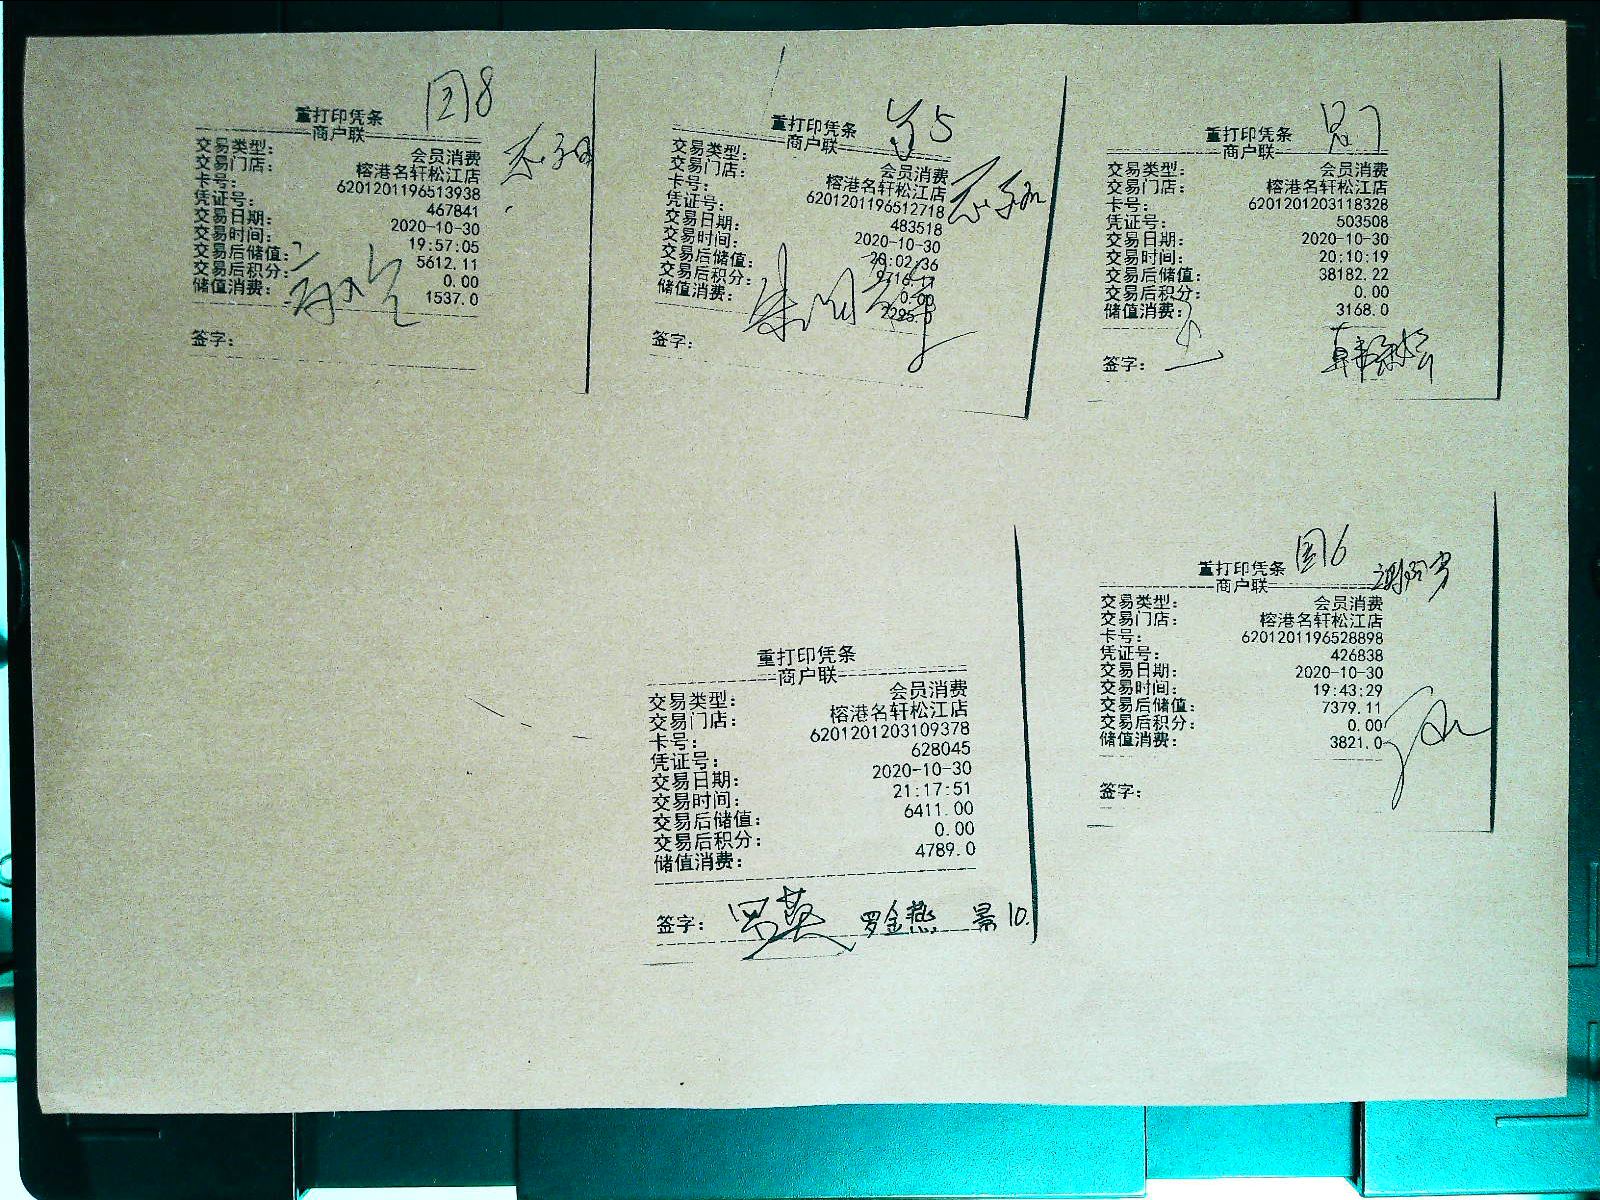 8
重打印凭条
商户联
交易类型: 会员消费
交易门店: 榕港名轩松江店
卡号: 6201201196513938
凭证号: 467841
交易日期: 2020-10-30
交易时间: 19:57:05
交易后储值: 5612.11
交易后积分: 0.00
储值消费: 1537.0
签字:
5
重打印凭条
商户联
交易类型: 会员消费
交易门店: 榕港名轩松江店
卡号: 6201201196512718
凭证号: 483518
交易日期: 2020-10-30
交易时间: 20:02:36
交易后储值: 9716.11
交易后积分: 0.00
储值消费: 2295.0
签字:
重打印凭条
商户联
交易类型: 会员消费
交易门店: 榕港名轩松江店
卡号: 6201201203118328
凭证号: 503508
交易日期: 2020-10-30
交易时间: 20:10:19
交易后储值: 38182.22
交易后积分: 0.00
储值消费: 3168.0
签字:
重打印凭条
商户联
交易类型: 会员消费
交易门店: 榕港名轩松江店
卡号: 6201201203109378
凭证号: 628045
交易日期: 2020-10-30
交易时间: 21:17:51
交易后储值: 6411.00
交易后积分: 0.00
储值消费: 4789.0
签字: 罗金燕 景10.
6
重打印凭条
商户联
交易类型: 会员消费
交易门店: 榕港名轩松江店
卡号: 6201201196528898
凭证号: 426838
交易日期: 2020-10-30
交易时间: 19:43:29
交易后储值: 7379.11
交易后积分: 0.00
储值消费: 3821.0
签字: